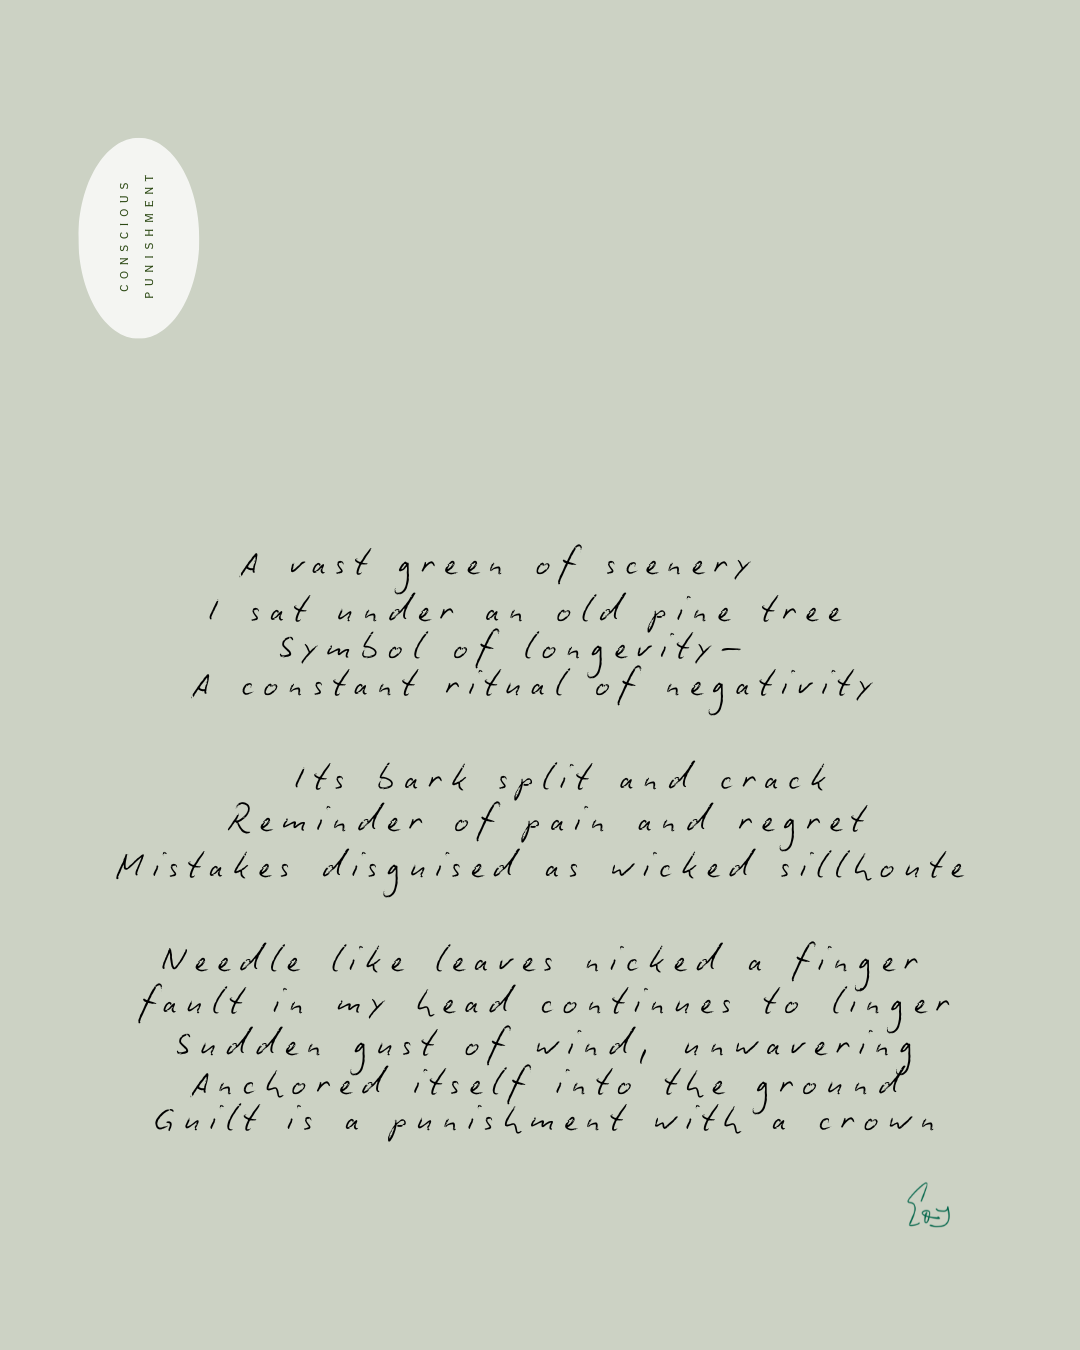 CONSCIOUS
PUNISHMENT
A vast green of scenery
I sat under an old pine tree
Symbol of longevity—
A constant ritual of negativity
Its bark split and crack
Reminder of pain and regret
Mistakes disguised as wicked sillhoute
Needle like leaves nicked a finger
fault in my head continues to linger
Sudden gust of wind, unwavering
Anchored itself into the ground
Guilt is a punishment with a crown